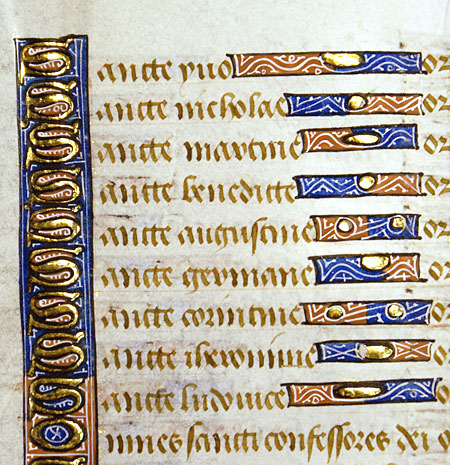 Sancte yuo or
Sancte nicholae or
Sancte martine or
Sancte benedicte or
Sancte augustine or
Sancte germane or
Sancte corintine or
Sancte iheronime or
Sancte ludouice or
Omnes sancti confessores dei o